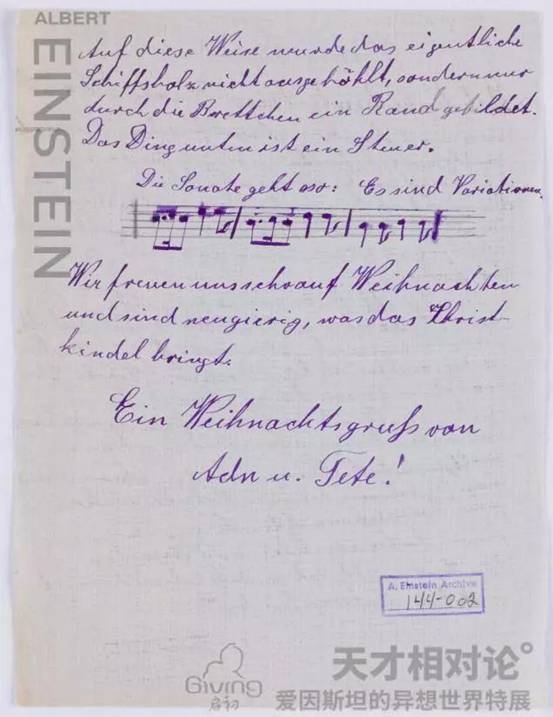 ALBERT
EINSTEIN
Auf diese Weise wurde das eigentliche
Schiffsholz nicht ausgehöhlt, sondern nur
durch die Brettchen ein Rand gebildet.
Das Ding unten ist ein Steuer.
Die Sonate geht so: Es sind Variationen.
Wir freuen uns schon auf Weihnachten
und sind neugierig, was das Christ-
kindel bringt.
Ein Weihnachtsgruss von
Adn u. Tete!
A. Einstein Archive
144-002
Giving
启初
天才相对论
爱因斯坦的异想世界特展